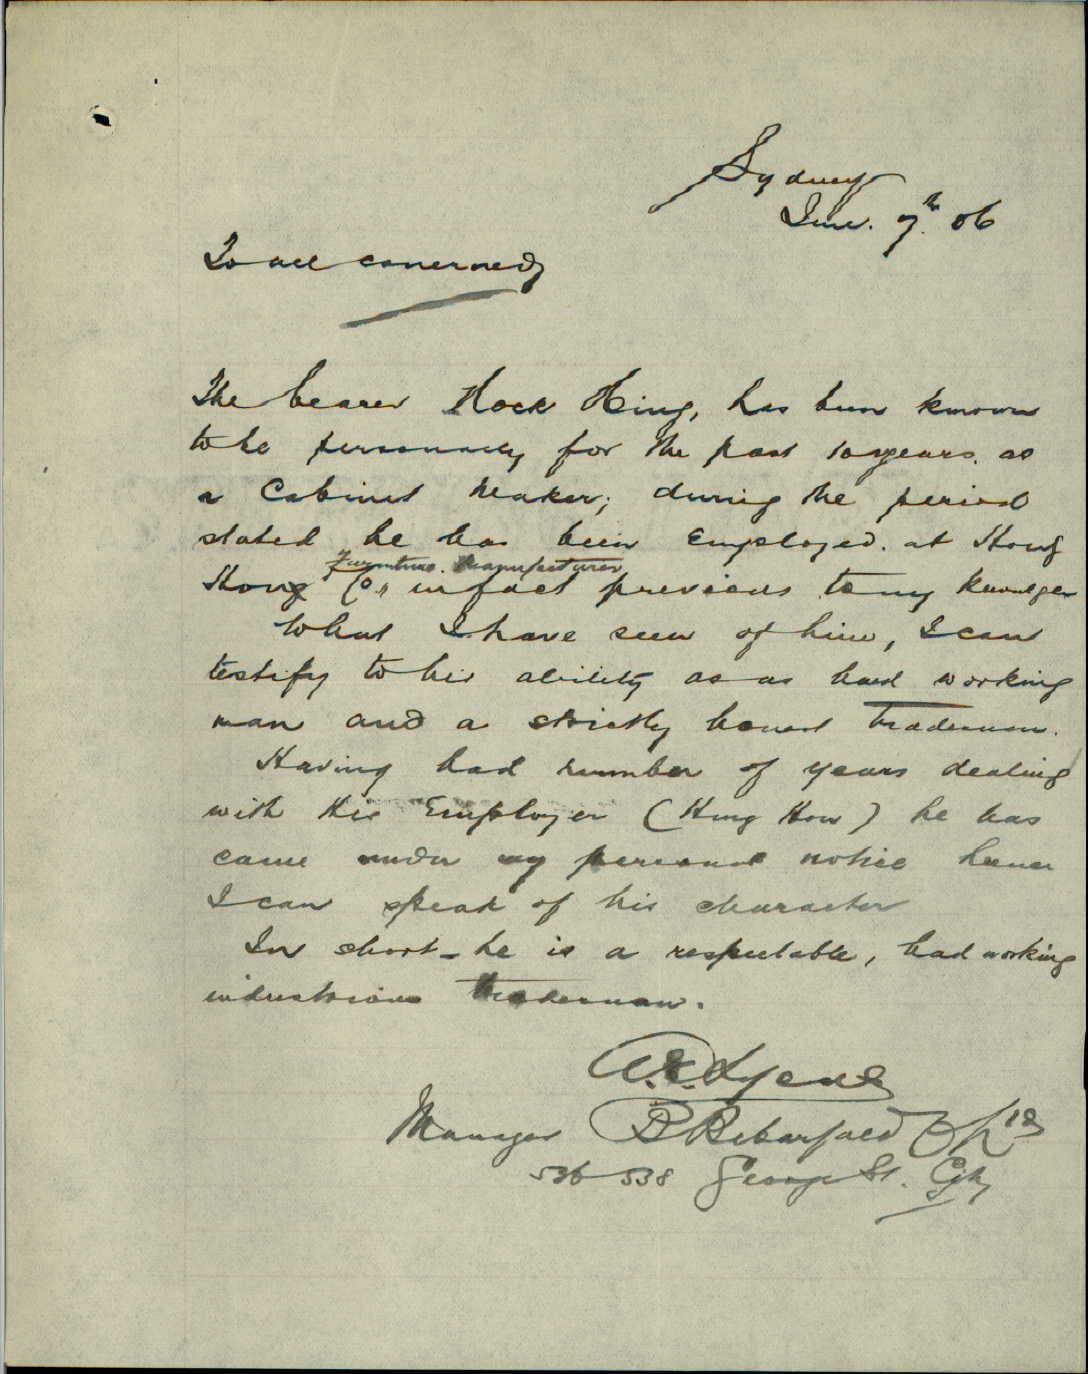 Sydney
June. 7th. 06
To all concerned
The bearer Hock Hing, has been known
to be personally for the past 10 years. as
a Cabinet Maker; during the period
stated he has been Employed. at Hong
Furniture. Manufacturer
Hong Co, infact previous to my
What I have seen of him, I can
testify to his ability as as hard working
man and a strictly honest tradesman.
Having had number of years dealing
with his Employer (Hung How) he has
came under my personal notice hence
I can speak of his character
In short - he is a respectable, had working
industrious tradesman.
Manager
536 538 George St. City